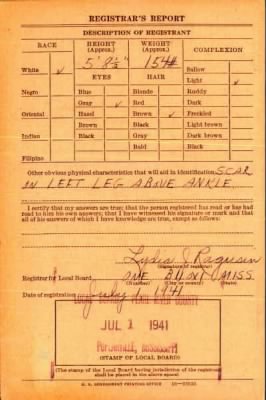 REGISTRAR'S REPORT
DESCRIPTION OF REGISTRANT
RACE HEIGHT (Approx.) WEIGHT (Approx.) COMPLEXION
White ✓ 5' 8½" 154# Sallow
EYES HAIR Light ✓
Negro Blue Blonde Ruddy
Gray ✓ Red Dark
Oriental Hazel Brown ✓ Freckled
Brown Black Light brown
Indian Black Gray Dark brown
Bald Black
Filipino
Other obvious physical characteristics that will aid in identification SCAR
ON LEFT LEG ABOVE ANKLE
I certify that my answers are true; that the person registered has read or has had
read to him his own answers; that I have witnessed his signature or mark and that
all of his answers of which I have knowledge are true, except as follows:
Lydia J.
(Signature of registrar)
Registrar for Local Board ONE MISS.
(Number) (City or county) (State)
Date of registration July 1, 1941
COUNTY
JUL 1 1941
MISSISSIPPI
(STAMP OF LOCAL BOARD)
(The stamp of the Local Board having jurisdiction of the registrant
shall be placed in the above space)
U. S. GOVERNMENT PRINTING OFFICE